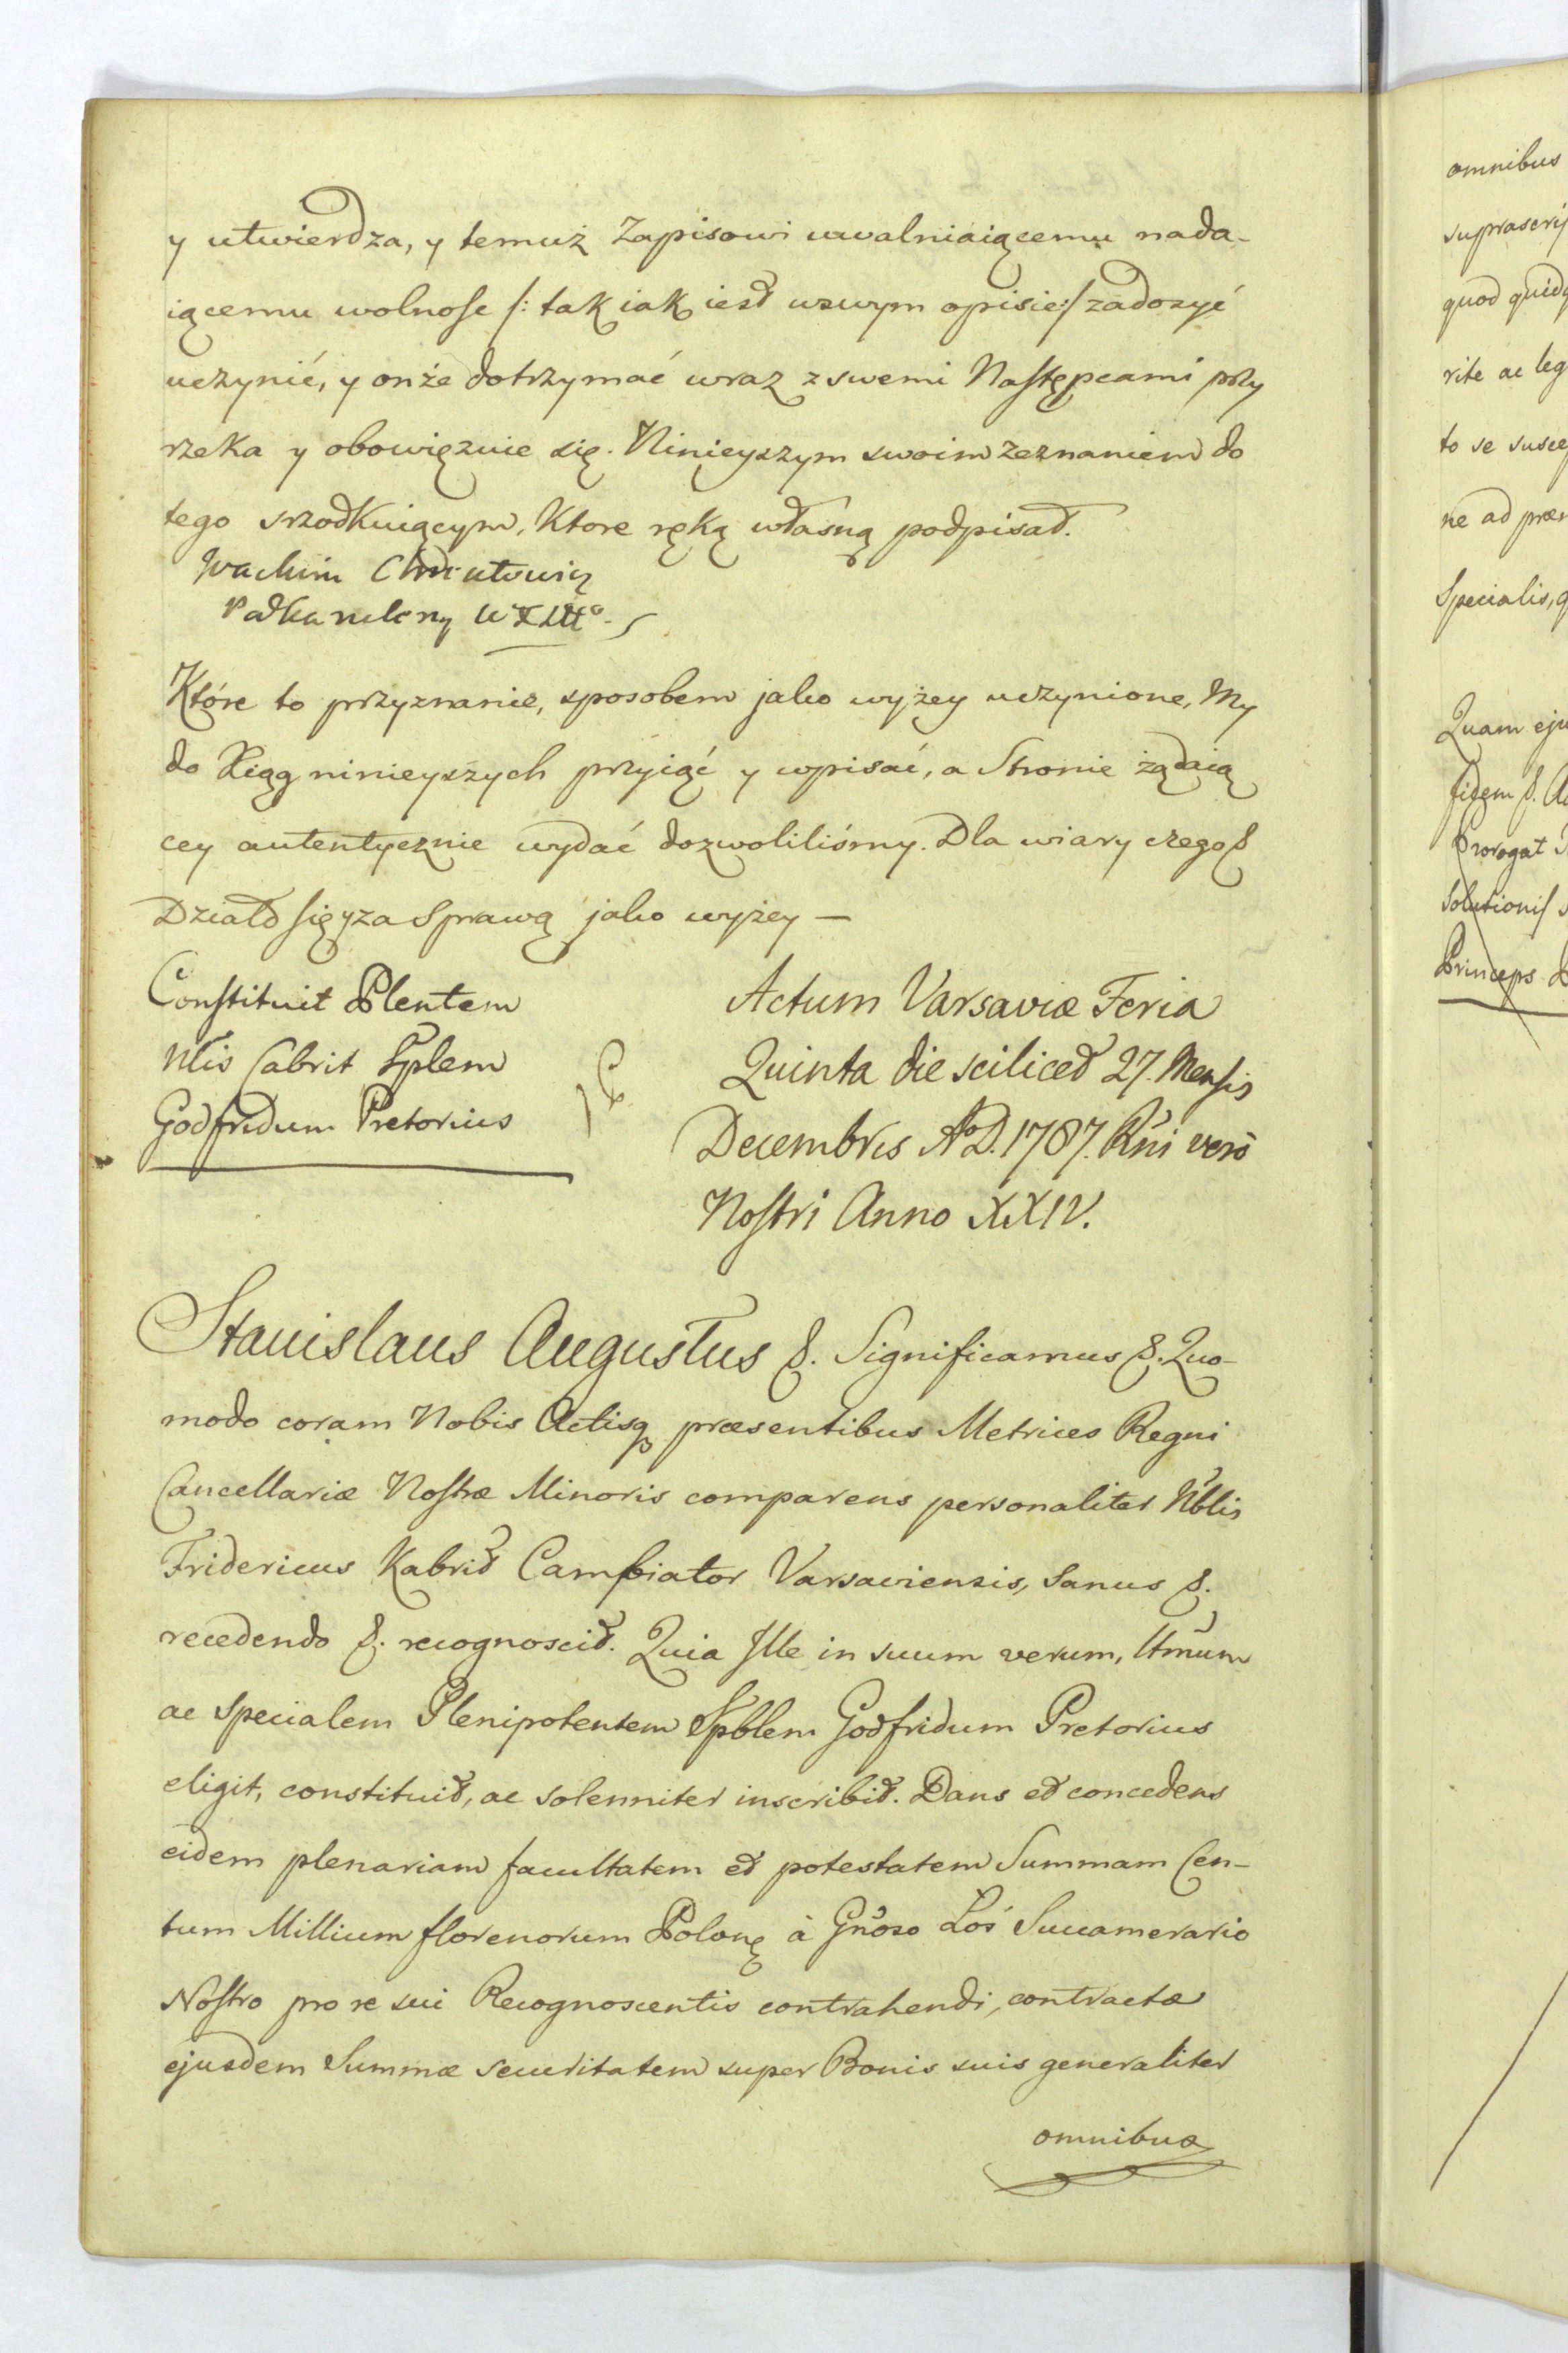 y utwierdza, y temuż Zapisowi uwalniaiącemu nada-
iącemu wolnosc /: tak iak iest wswym opisie :/ zadosyć
uczynić, y onże dotrzymać wraz z swemi Następcami przy
rzeka y obowięzuie się. Ninieyszym swoim zeznaniem do
tego srzodkuiącym, Ktore ręką własną podpisał.
Które to przyznanie, sposobem jako wyżey uczynione, My
do Xiąg ninieyszych przyiąć y wpisać, a Stronie żądaią
cey autentycznie wydać dozwoliliśmy. Dla wiary czego &
Działo się y za Sprawą jako wyżey —
Constituit Plentem
Nlis Cabrit Splem
Godfridum Pretorius
Actum Varsaviæ Feria
Quinta die scilicet 27. Mensis
Decembris A. D. 1787. Rni verò
Nostri Anno XXIV.
Stanislaus Augustus &. Significamus &. Quo-
modo coram Nobis Actisq præsentibus Metrices Regni
Cancellariæ Nostræ Minoris comparens personaliter Nblis
Fridericus Kabrit Campiator Varsaviensis, Sanus &.
recedendo &. recognoscit. Quia Ille in suum verum, ltmum
ac specialem Plenipotentem Spblem Godfridum Pretorius
eligit, constituit, ac solenniter inscribit. Dans et concedens
eidem plenariam facultatem et potestatem Summam Cen-
tum Millium florenorum Polon à Gnoso Łoś Succamerario
Nostro pro re sui Recognoscentis contrahendi, contractæ
ejusdem Summæ securitatem super Bonis suis generaliter
omnibus
omnibus
suprascri
quod quidq
rite ac leg
to se susce
ne ad præ
Specialis, q
Quam eju
fidem &. Ac
Prorogat
Solutionis
Princeps